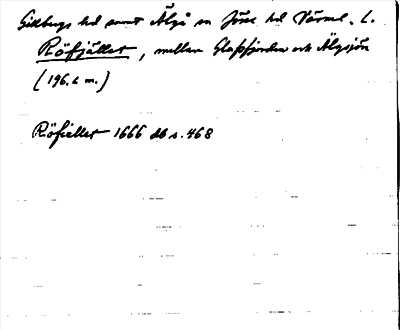 Gillbergs hd samt Älgå sn Jösse hd Värml. l.
Röfjället, mellan Glafsfjorden och Älgsjön
(196.6 m.)
Röfiellet 1666 db s. 468